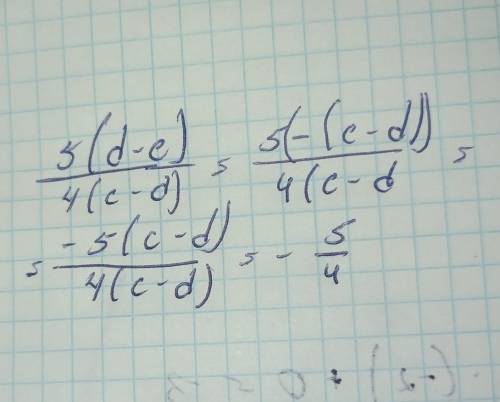 5(d-c)/4(c-d) = 5(-(c-d))/4(c-d =
= -5(c-d)/4(c-d) = - 5/4